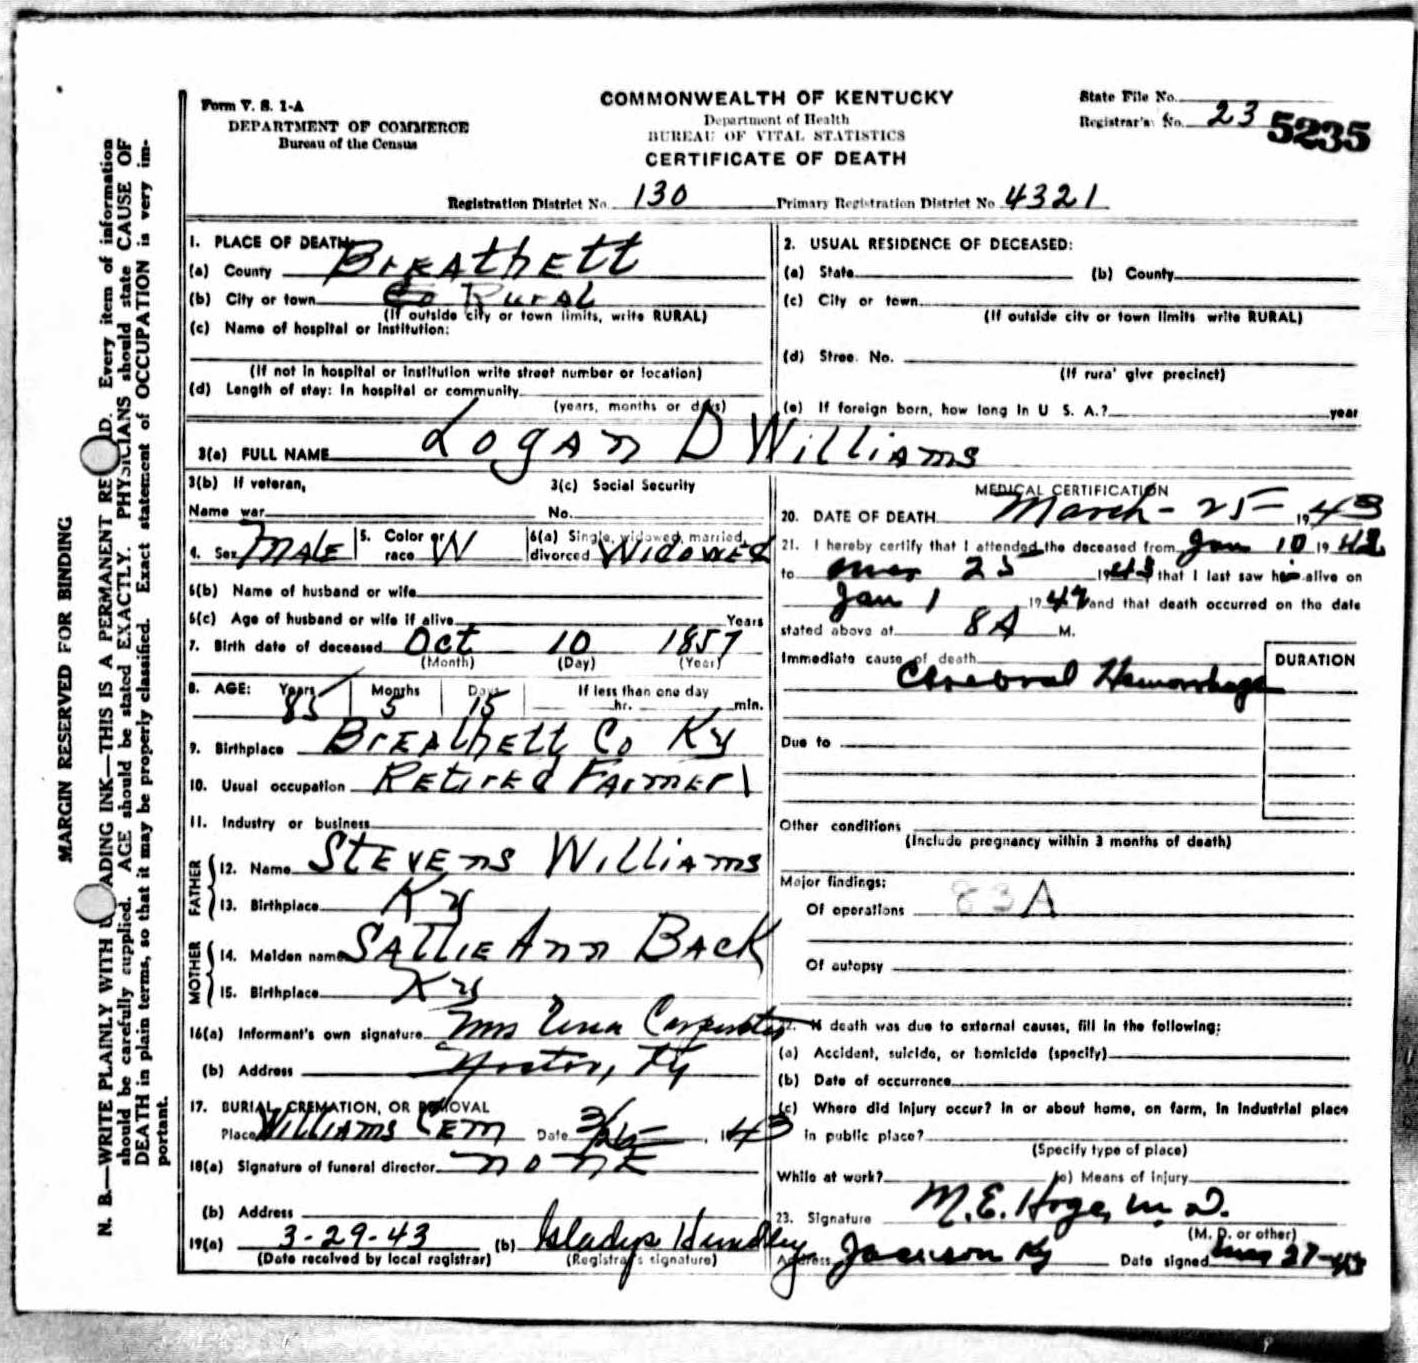 Form V. S. 1-A
DEPARTMENT OF COMMERCE
Bureau of the Census
COMMONWEALTH OF KENTUCKY
Department of Health
BUREAU OF VITAL STATISTICS
CERTIFICATE OF DEATH
State File No.
Registrar's No. 23 5235
Registration District No. 130 Primary Registration District No 4321
MARGIN RESERVED FOR BINDING
N. B.—WRITE PLAINLY WITH ADING INK—THIS IS A PERMANENT RE D. Every item of information
should be carefully supplied. AGE should be stated EXACTLY. PHYSICIANS should state CAUSE OF
DEATH in plain terms, so that it may be properly classified. Exact statement of OCCUPATION is very im-
portant.
1. PLACE OF DEATH:
(a) County Breathett
(b) City or town Co Rural
(If outside city or town limits, write RURAL)
(c) Name of hospital or Institution:
(If not in hospital or institution write street number or location)
(d) Length of stay: In hospital or community
(years, months or days)
2. USUAL RESIDENCE OF DECEASED:
(a) State (b) County
(c) City or town
(If outside city or town limits write RURAL)
(d) Stree. No.
(If rura' give precinct)
(e) If foreign born, how long in U S. A.? year
3(a) FULL NAME Logan D Williams
3(b) If veteran, 3(c) Social Security
Name war No.
4. Sex Male 5. Color or race W 6(a) Single, widowed, married, divorced Widowed
6(b) Name of husband or wife
6(c) Age of husband or wife if alive Years
7. Birth date of deceased Oct 10 1857
(Month) (Day) (Year)
8. AGE: Years 85 Months 5 Days 15 If less than one day hr. min.
9. Birthplace Breathett Co Ky
10. Usual occupation Retired Farmer
11. Industry or business
FATHER
12. Name Stevens Williams
13. Birthplace Ky
MOTHER
14. Maiden name Sallie Ann Back
15. Birthplace Ky
16(a) Informant's own signature Mrs Carpenter
(b) Address Ky
17. BURIAL, CREMATION, OR REMOVAL
Place Williams Cem Date 3/26 , 1943
18(a) Signature of funeral director none
(b) Address
19(a) 3-29-43 (b) Gladys Hundley
(Date received by local registrar) (Registrar's signature)
MEDICAL CERTIFICATION
20. DATE OF DEATH March - 25 - 1943
21. I hereby certify that I attended the deceased from Jan 10 19
to Mar 25 1943 that I last saw him alive on
Jan 1 19 and that death occurred on the date
stated above at 8A M.
Immediate cause of death DURATION
Cerebral Hemorrhage
Due to
Other conditions
(Include pregnancy within 3 months of death)
Major findings:
Of operations 83A
Of autopsy
22. If death was due to external causes, fill in the following:
(a) Accident, suicide, or homicide (specify)
(b) Date of occurrence
(c) Where did injury occur? In or about home, on farm, in industrial place
in public place?
(Specify type of place)
While at work? (e) Means of injury
23. Signature M.E. Hoge, M.D.
(M. D. or other)
Address Jackson Ky Date signed Mar 27-43